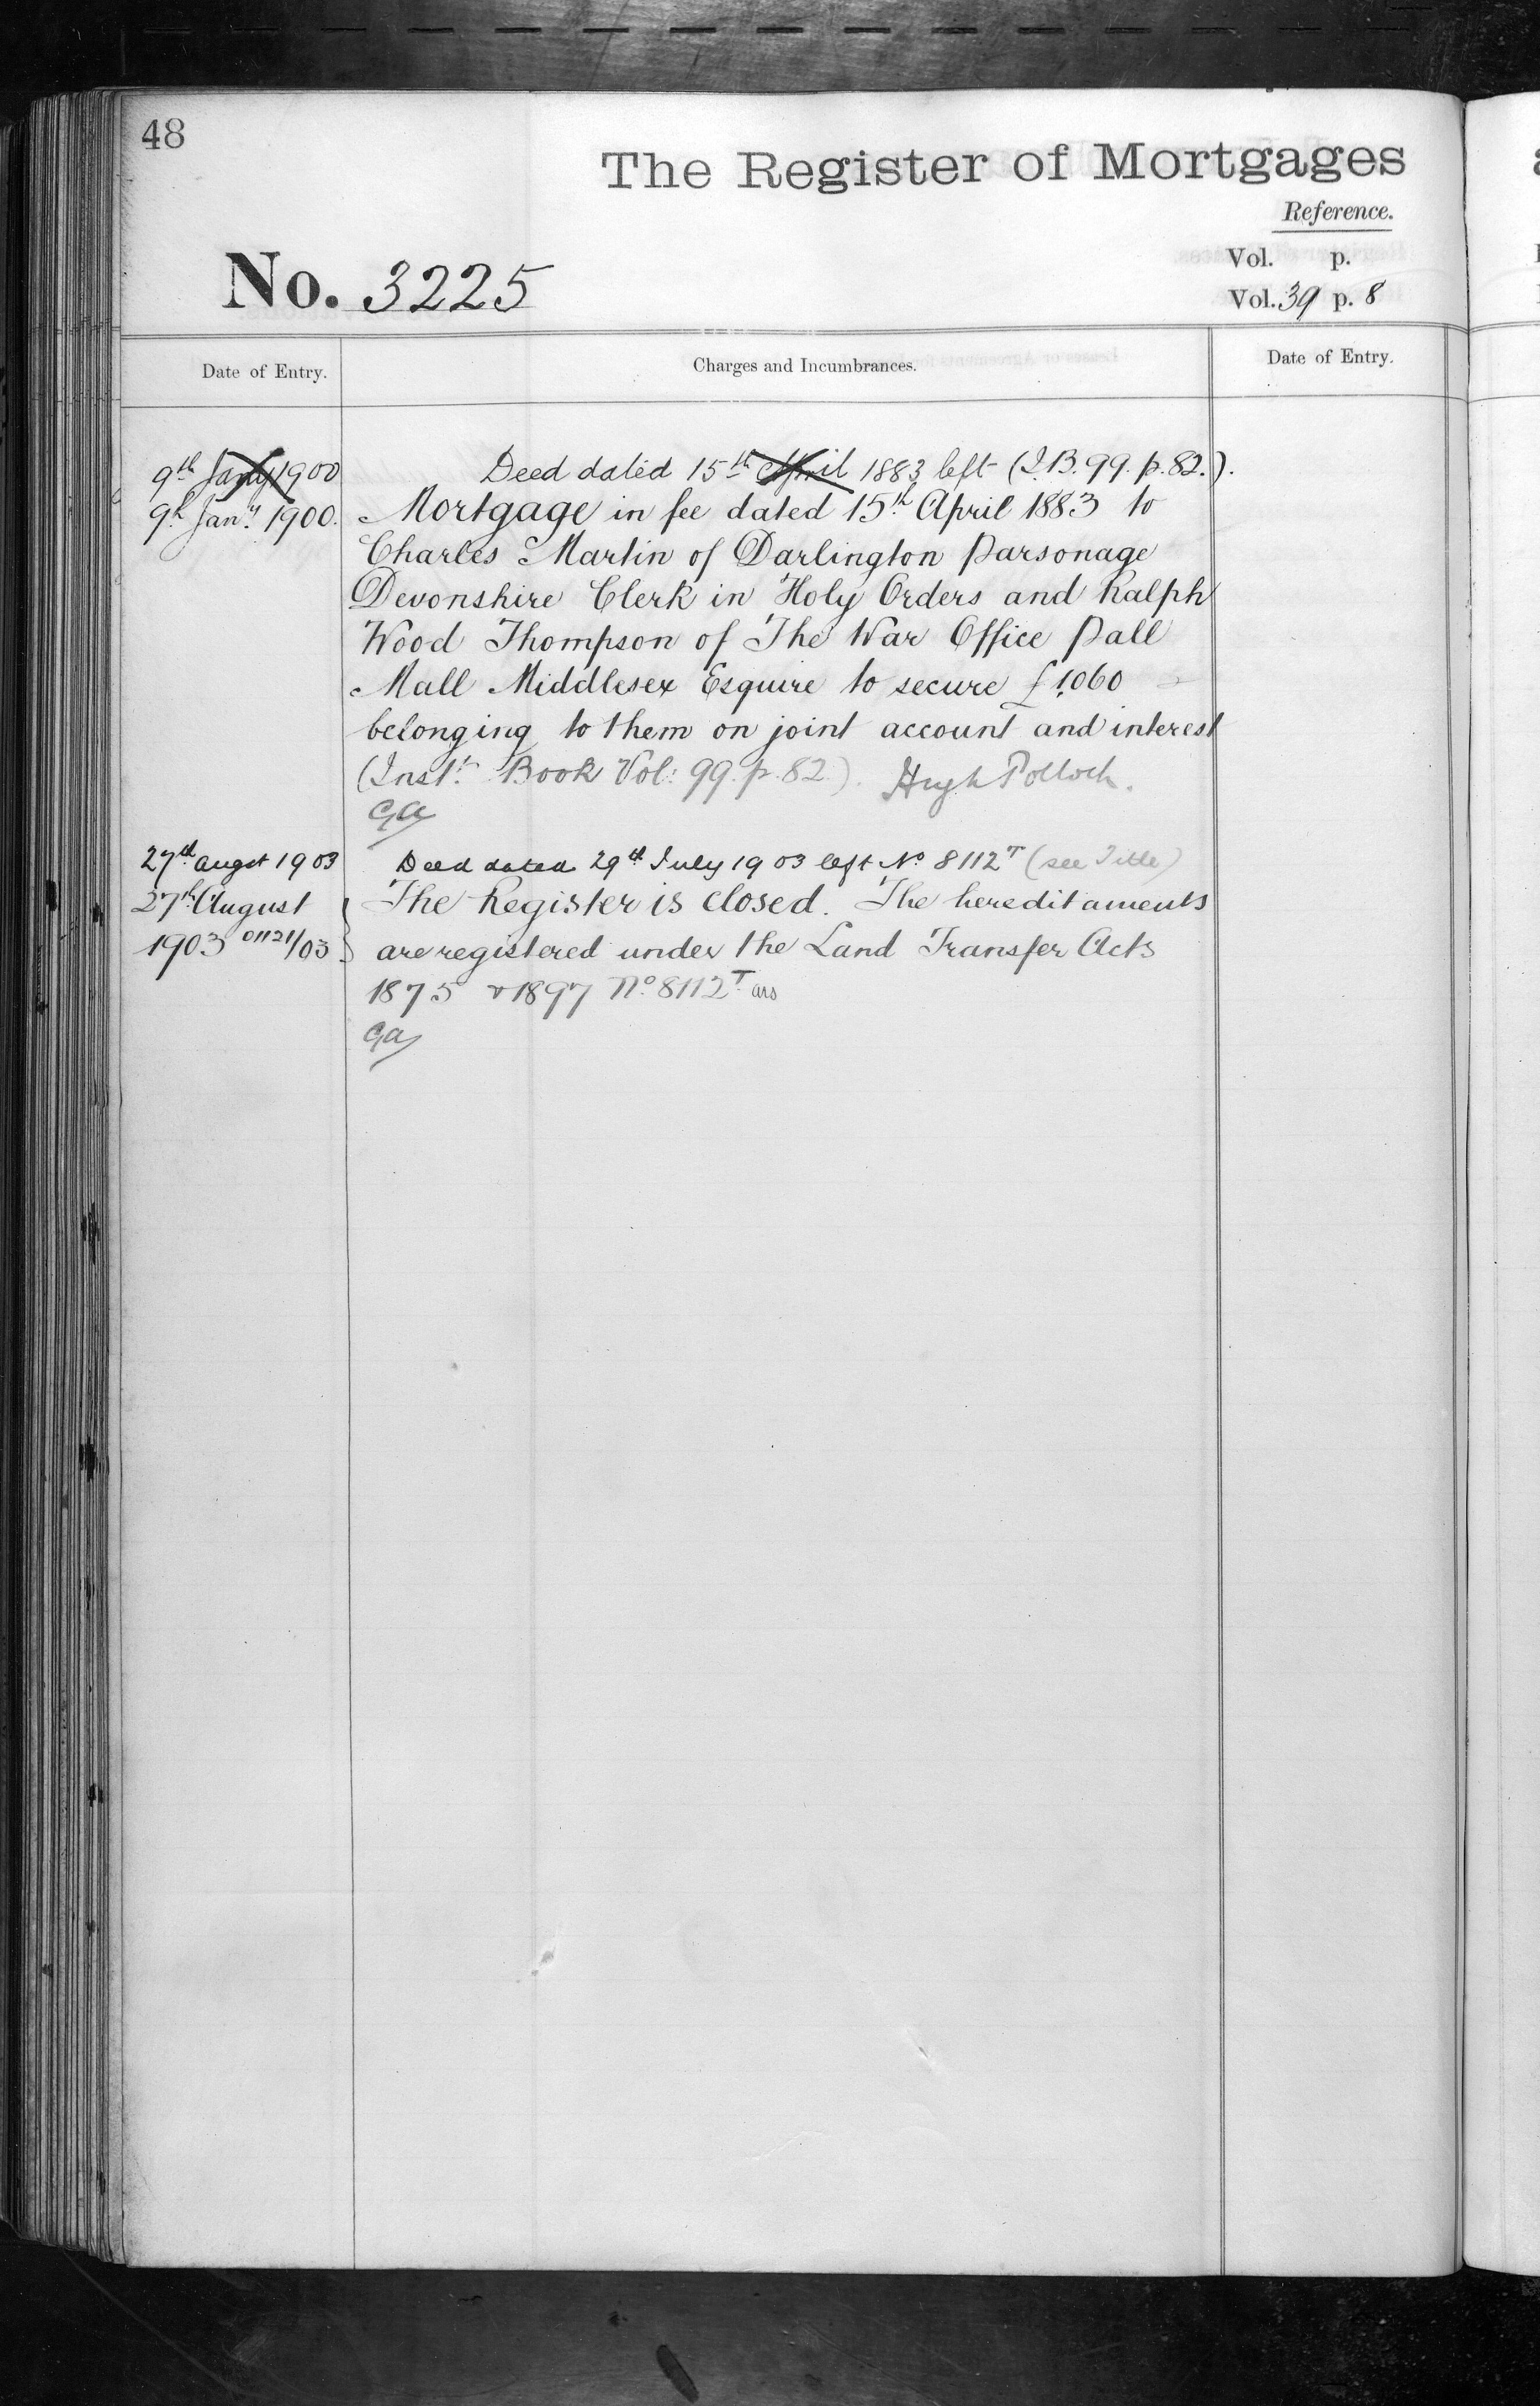 48
The Register of Mortgages
Reference.
Vol. p.
No. 3225
Vol. 39 p. 8
Date of Entry.
Charges and Incumbrances.
Date of Entry.
9th Jany 1900 Deed dated 15th April 1883 left (I.B. 99. p. 82.).
9th Jany 1900. Mortgage in fee dated 15th April 1883 to
Charles Martin of Darlington Parsonage
Devonshire Clerk in Holy Orders and Ralph
Wood Thompson of The War Office Pall
Mall Middlesex Esquire to secure £1,060
belonging to them on joint account and interest
(Instt Book Vol: 99. p. 82.). Hugh Pollock.
GA
27th augst 1903 Deed dated 29th July 1903 left No 8112T (see Title)
27th August The Register is closed. The hereditaments
1903 01121/03 are registered under the Land Transfer Acts
1875 & 1897 No. 8112T
GA